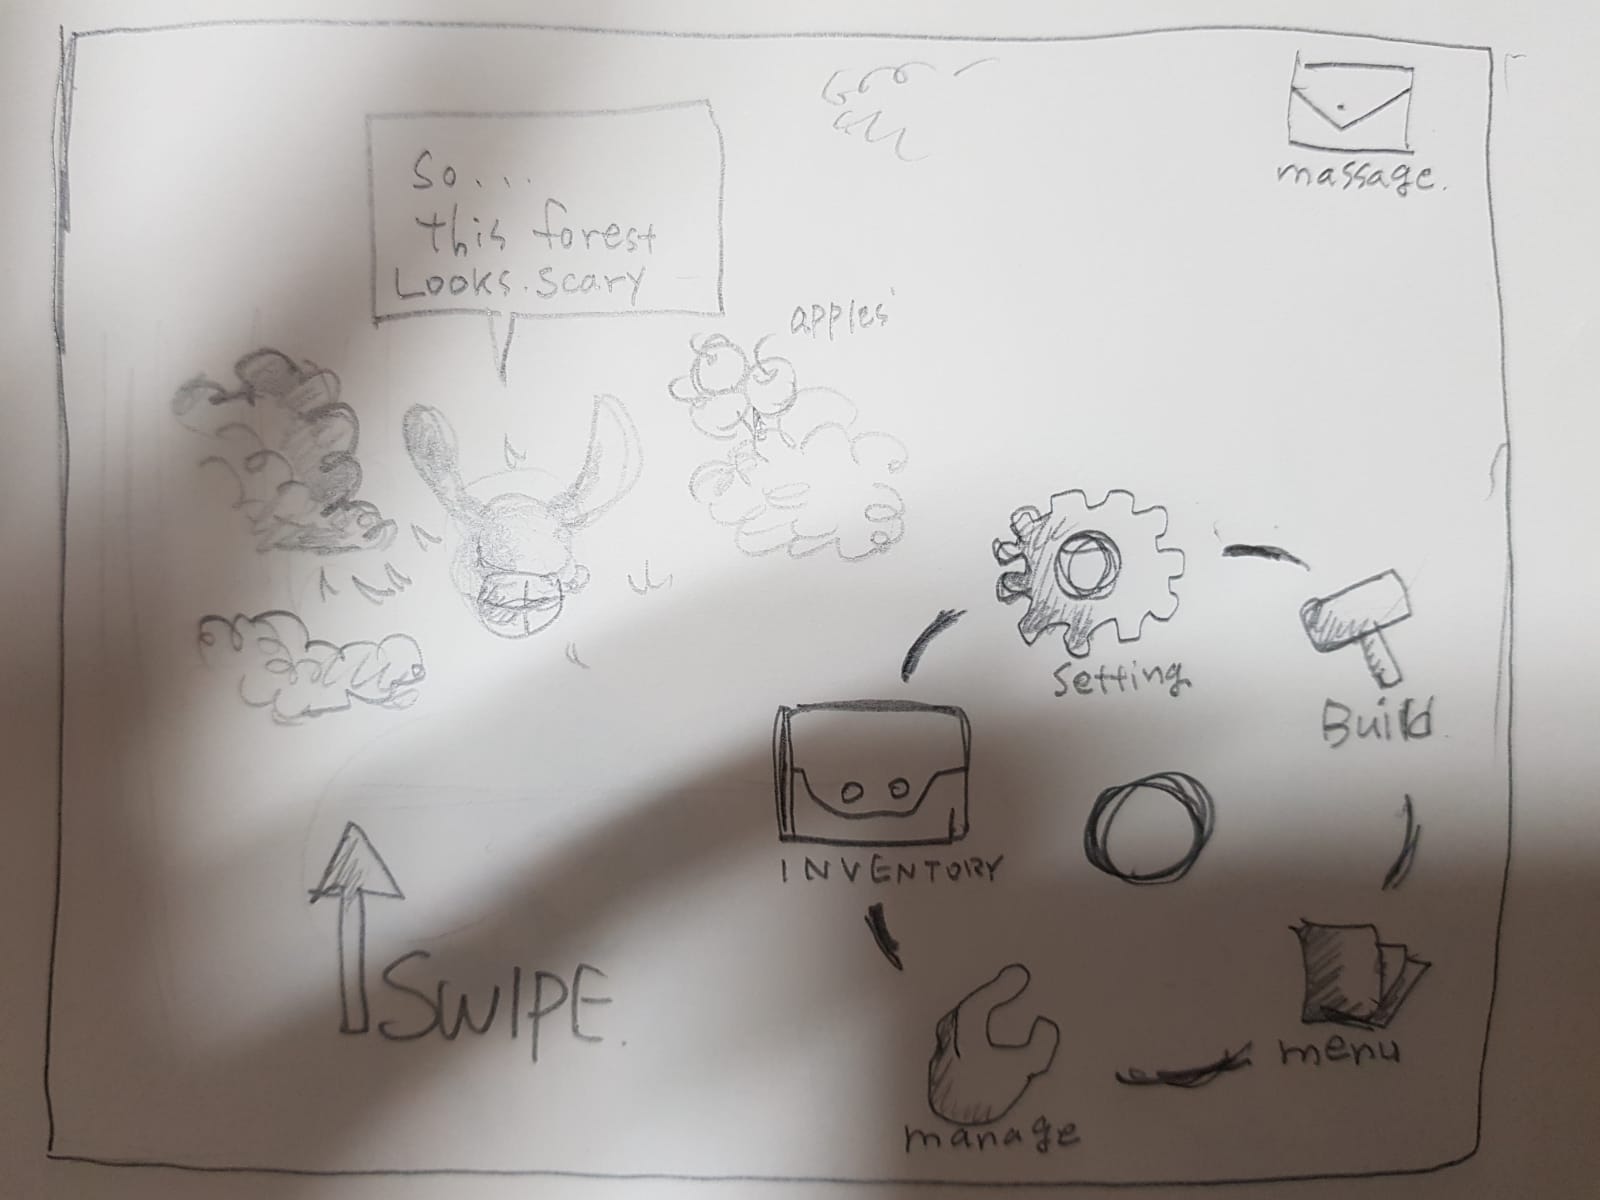 massage.
So...
this forest
Looks.scary
apples
setting
Build
INVENTORY
SWIPE.
menu
manage